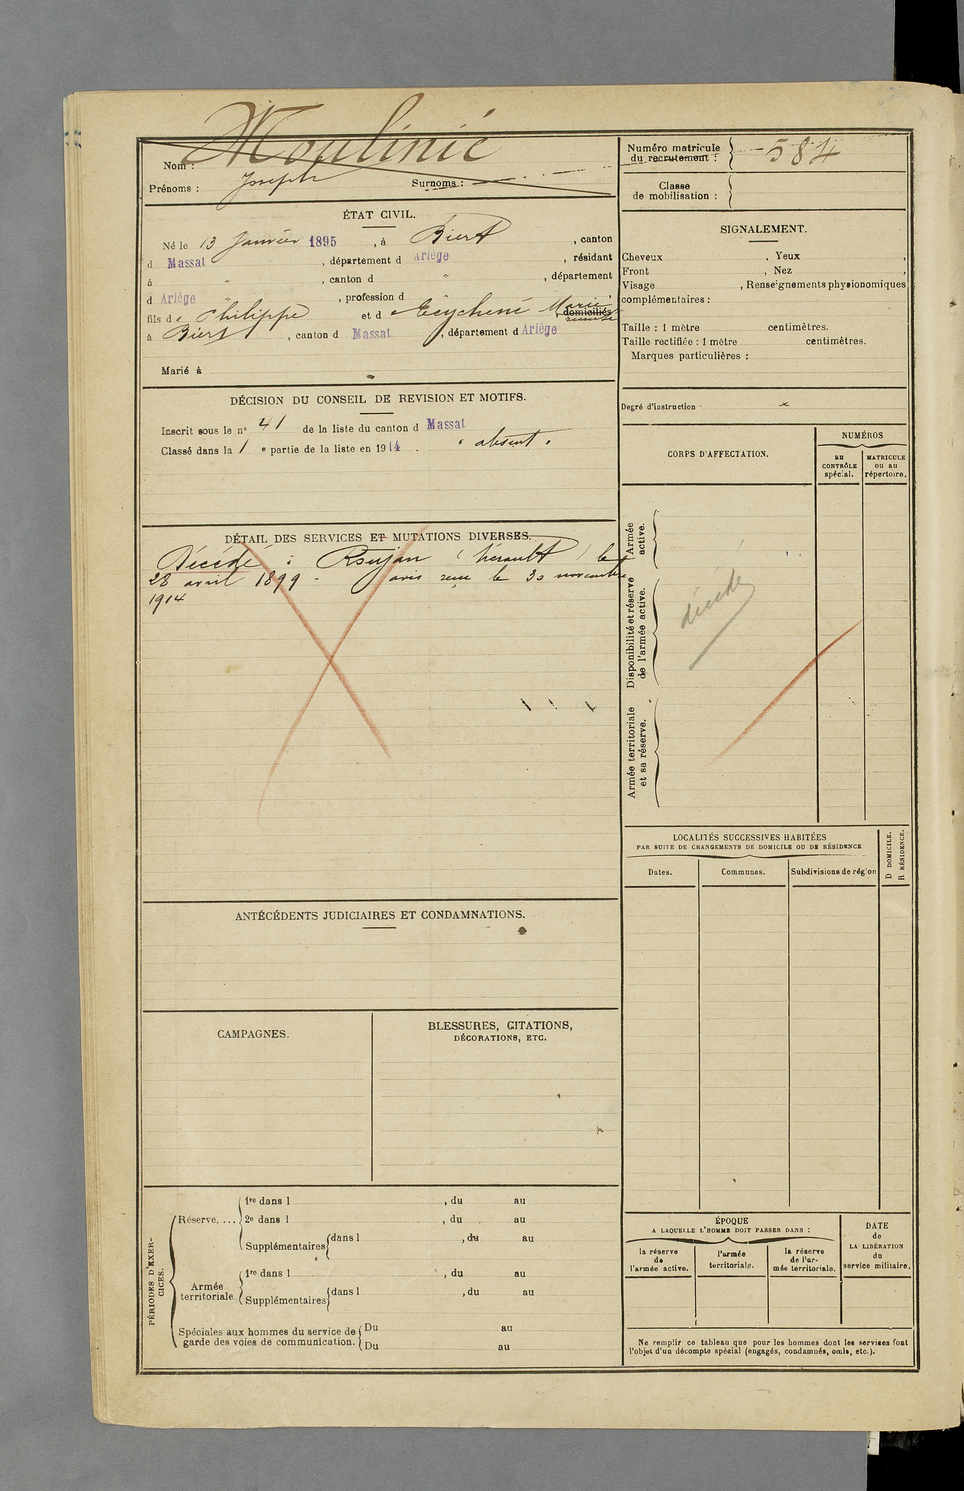 Moulinié
Nom :
Joseph
Prénoms :
Surnoms :
ÉTAT CIVIL.
Né le 13 Janvier 1895, à Biert, canton
d Massat, département d Ariège, résidant
à ", canton d ", département
d Ariège, profession d
fils de Philippe et de Eychenié Marie domiciliés
à Biert, canton d Massat, département d Ariège
Marié à
DÉCISION DU CONSEIL DE REVISION ET MOTIFS.
Inscrit sous le n° 41 de la liste du canton d Massat
Classé dans la 1 e partie de la liste en 1914. " absent "
DÉTAIL DES SERVICES ET MUTATIONS DIVERSES.
Décédé à Roujan (hérault) le
28 avril 1899 - avis reçu le 30 novembre
1914
ANTÉCÉDENTS JUDICIAIRES ET CONDAMNATIONS.
CAMPAGNES.
BLESSURES, CITATIONS,
DÉCORATIONS, ETC.
PÉRIODES D'EXER-
CICES.
Réserve....
1re dans l , du au
2e dans l , du au
Supplémentaires dans l , du au
Armée
territoriale.
1re dans l , du au
Supplémentaires dans l , du au
Spéciales aux hommes du service de
garde des voies de communication.
Du au
Du au
Numéro matricule
du recrutement :
584
Classe
de mobilisation :
SIGNALEMENT.
Cheveux , Yeux ,
Front , Nez ,
Visage , Renseignements physionomiques
complémentaires :
Taille : 1 mètre centimètres.
Taille rectifiée : 1 mètre centimètres.
Marques particulières :
Degré d'instruction
CORPS D'AFFECTATION.
NUMÉROS
au
CONTRÔLE
spécial.
MATRICULE
ou au
répertoire.
Armée
active.
Disponibilité et réserve
de l'armée active.
décédé
Armée territoriale
et sa réserve.
LOCALITÉS SUCCESSIVES HABITÉES
PAR SUITE DE CHANGEMENTS DE DOMICILE OU DE RÉSIDENCE
D DOMICILE.
R RÉSIDENCE.
Dates.
Communes.
Subdivisions de région
ÉPOQUE
A LAQUELLE L'HOMME DOIT PASSER DANS :
la réserve
de
l'armée active.
l'armée
territoriale.
la réserve
de l'ar-
mée territoriale.
DATE
de
LA LIBÉRATION
du
service militaire.
Ne remplir ce tableau que pour les hommes dont les services font
l'objet d'un décompte spécial (engagés, condamnés, omis, etc.).